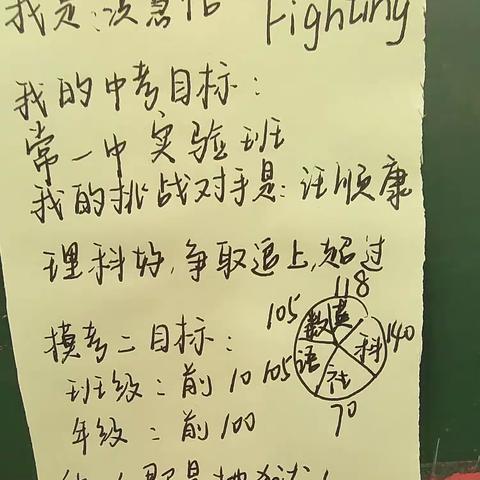 我是:没意怕 Fighting
我的中考目标:
常一中实验班
我的挑战对手是:汪顺康
理科好,争取追上,超过
118
105 数 英
科 140
摸考二目标:
语
班级:前10 105 社
年级:前100
70